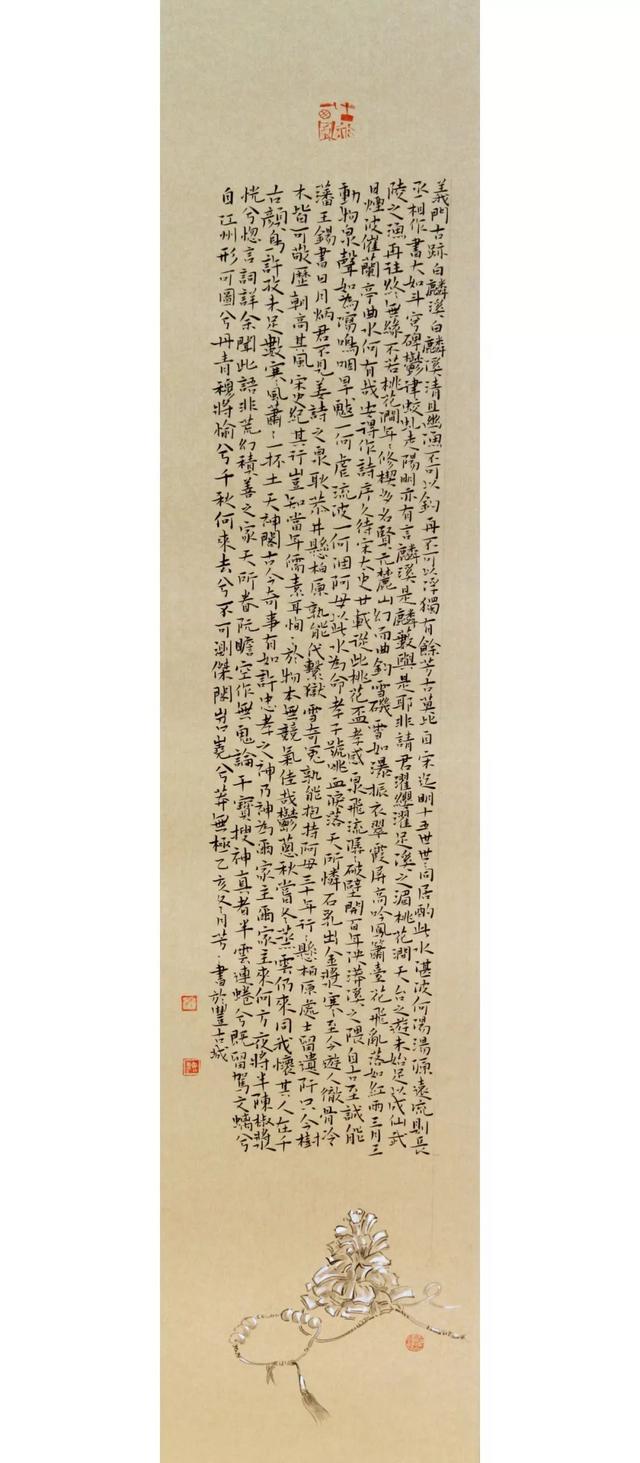 義門古跡白麟溪白麟溪清且幽漁不可以釣舟不可以浮獨有餘芳古莫比自宋迄明十五世世同居酌此水湛波何湯湯源遠流則長
丞相作書大如斗穹碑鬱律蛟虬走陽明亦有言麟溪是麟藪與是耶非請君濯纓濯足溪之湄桃花澗天台之遊未始足以成仙武
陵之漁再往終無緣不若桃花澗年〻修禊多名賢元麓山幻而曲釣雪磯雪如瀑振衣翠霞屏高吟鳳簫臺花飛亂落如紅雨三月三
日煙波催蘭亭曲水何有哉安得作詩序久待宋太史廿載從此桃花盃孝感泉飛流瀑〻破壁開百年泱漭溪之隈自古至誠能
動物泉聲如為瀉嗚咽旱魃一何虐流波一何涸阿母以此水為命孝子號咷血淚落天所憐石乳出金漿寒至今遊人徹骨冷
藩王錫書日月炳君不見姜詩之泉耿恭井懸柏原孰能代繫獄雪奇冤孰能抱持阿母三十年行〻懸柏原處士留遺阡只今樹
木皆可敬歷朝高其風宋史紀其行豈知當年儒素耳恂〻於物本無競氣佳哉鬱蔥秋嘗冬烝雲仍來同我懷其人在千
古顏烏許孜未足數寒風蕭〻一抔土天神閣古今奇事有如許忠孝之神乃神為爾家主爾家主來何方夜將半陳椒漿
恍兮惚言詞詳余聞此語非荒幻積善之家天所眷阮瞻空作無鬼論干寶搜神真者半雲連蜷兮既留駕文螭兮
自江州形可圖兮丹青穆將愉兮千秋何來去兮不可測傑閣岧嶤兮莽無極乙亥冬月芳〻書於豐古城